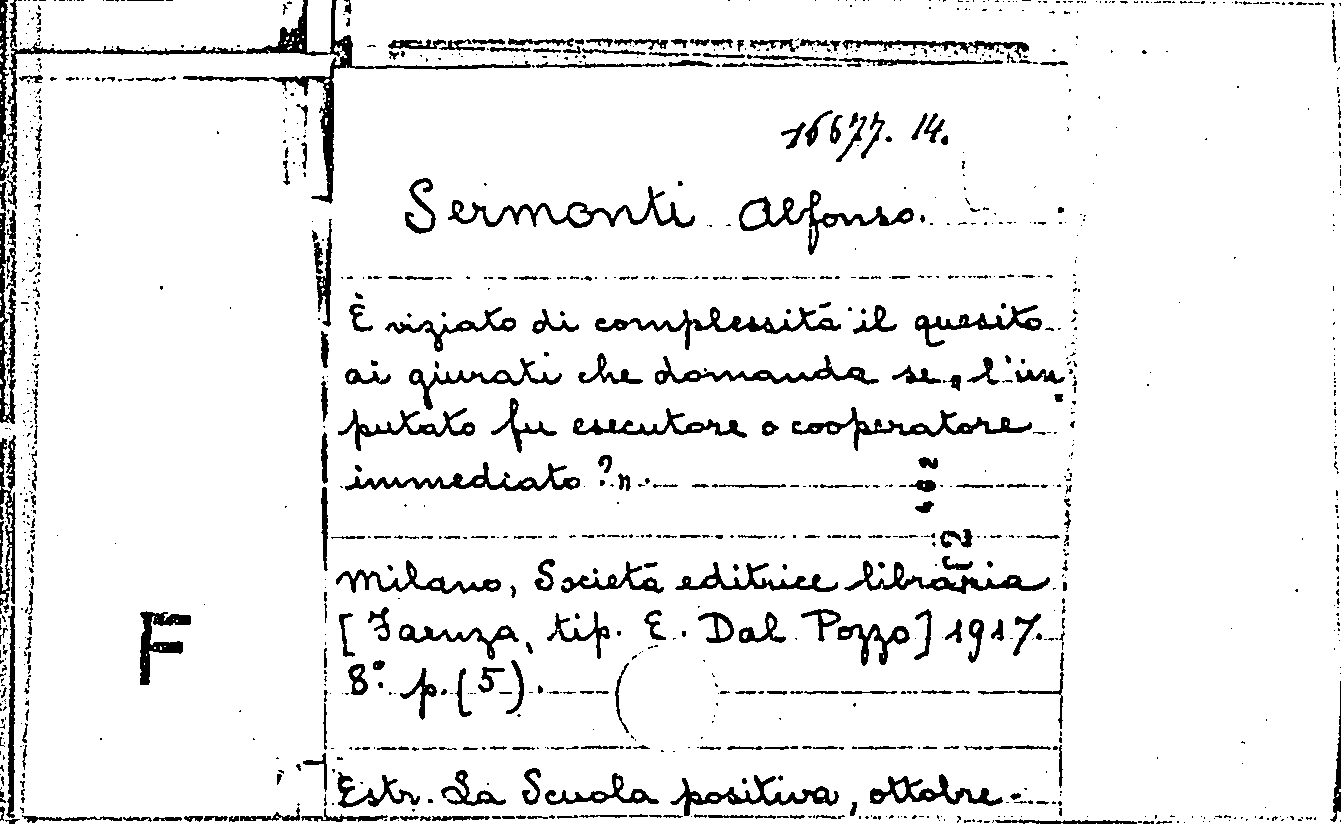 16677. 14.
Sermonti Alfonso.
È viziato di complessità il quesito
ai giurati che domanda se „ l'im
putato fu esecutore o cooperatore
immediato ? „.
402
Milano, Società editrice libraria
[Faenza, tip. E. Dal Pozzo] 1917.
8° p. (5).
F
Estr. La Scuola positiva, ottobre-